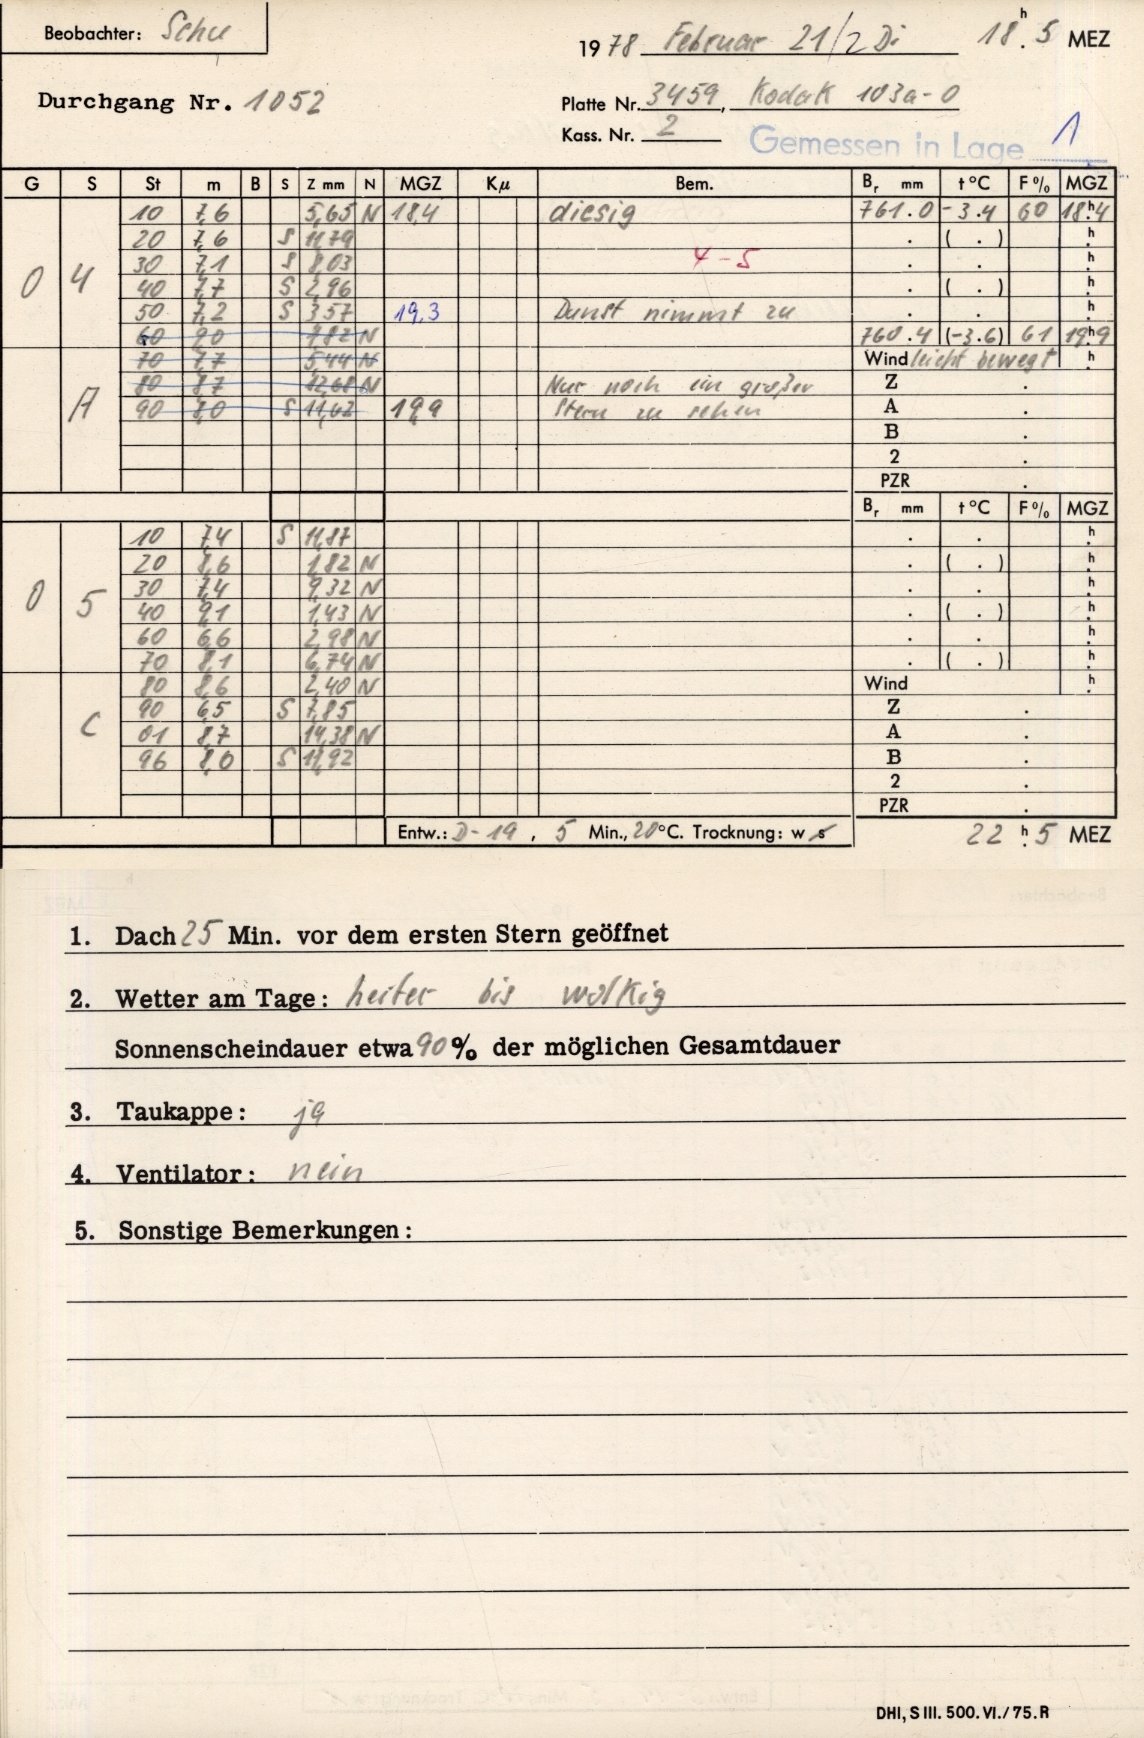 Beobachter: Schu
1978 Februar 21/2 Di 18h.5 MEZ
Durchgang Nr. 1052
Platte Nr. 3459, Kodak 103a-O
Kass. Nr. 2
Gemessen in Lage 1
G S St m B S Z mm N MGZ Kμ Bem. Br mm t°C F% MGZ
10 7,6 5,65 N 18,4 diesig 761.0 -3.4 60 18h.4
20 7,6 S 11,79 . ( . ) h.
0 4 30 7,1 S 8,03 4-5 . . h.
40 7,7 S 2,96 . ( . ) h.
50 7,2 S 3,57 19,3 Dunst nimmt zu . . h.
60 9,0 7,82 N 760.4 (-3.6) 61 19h.9
70 7,7 5,44 N Wind leicht bewegt h.
80 8,7 12,68 N Nur noch ein großer Z .
A 90 8,0 S 11,62 19,9 Stern zu sehen A .
B .
2 .
PZR .
Br mm t°C F% MGZ
10 7,4 S 11,87 . . h.
20 8,6 1,82 N . ( . ) h.
0 5 30 7,4 9,32 N . . h.
40 9,1 1,43 N . ( . ) h.
60 6,6 2,98 N . . h.
70 8,1 6,74 N . ( . ) h.
80 8,6 2,40 N Wind h.
C 90 6,5 S 7,85 Z .
01 8,7 14,38 N A .
96 8,0 S 11,92 B .
2 .
PZR .
Entw.: D-19, 5 Min., 20°C. Trocknung: w s 22h.5 MEZ
1. Dach 25 Min. vor dem ersten Stern geöffnet
2. Wetter am Tage: heiter bis wolkig
Sonnenscheindauer etwa 90% der möglichen Gesamtdauer
3. Taukappe: ja
4. Ventilator: nein
5. Sonstige Bemerkungen:
DHI, S III. 500. VI./75. R